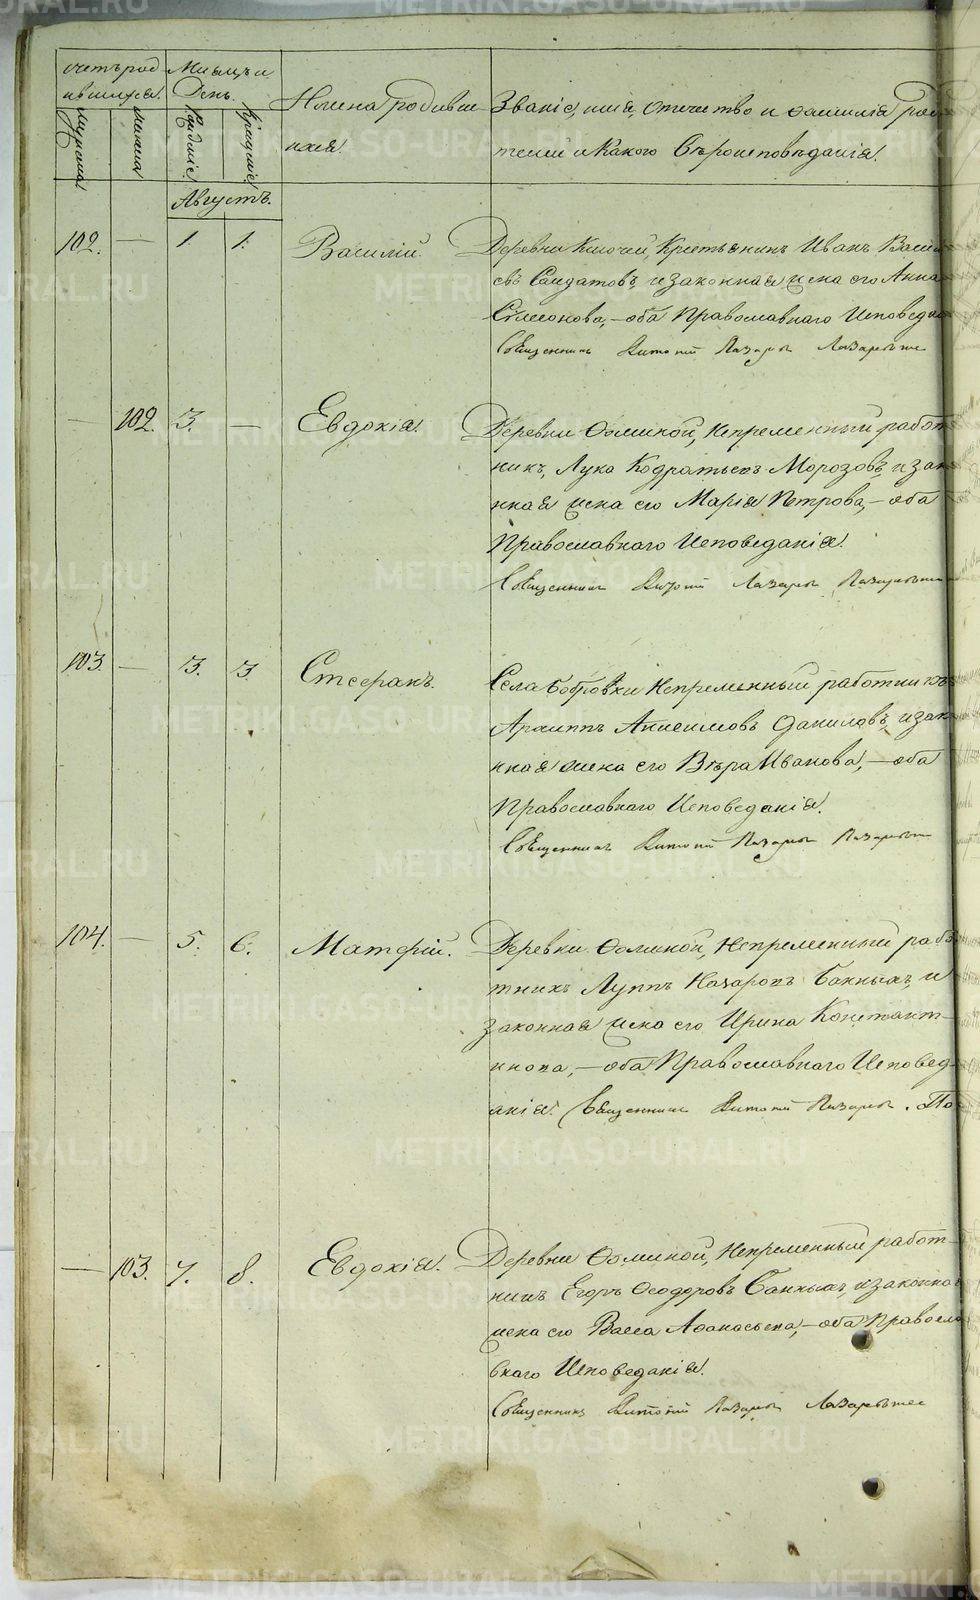 Счетъ род
ившихся.
Мѣсяцъ и
День.
Имена родивш
ихся.
Званіе, имя, отчество и фамилія роди
телей и Какого Вѣроисповѣданія.
мужеска
женска
Рожденіе
Крещеніе
Августъ.
102. — 1. 1. Василій.
Деревни Ключей, Крестьянинъ Иванъ Василь
евъ Солдатовъ, и законная жена его Анна
Симеонова, — оба Православнаго Исповедан
Священникъ Лазарь
— 102. 3. — Евдокія.
Деревни Ѳоминой, Непременный работ
никъ, Лука Кодратьевъ Морозовъ, и зако
нная жена его Марія Петрова, — оба
Православнаго Исповеданія.
Священникъ Лазарь
103. — 3. 3. Стефанъ.
Села Бобровки Непременный работникъ
Архиппъ Анисимовъ Даниловъ, и зако
нная жена его Вѣра Иванова, — оба
Православнаго Исповеданія.
Священникъ Лазарь
104. — 5. 6. Матфій.
Деревни Ѳоминой, Непременный рабо
тникъ Луппъ Назаровъ Банныхъ, и
законная жена его Ирина Констант
инова, — оба Православнаго Исповед
анія. Священникъ Лазарь
— 103. 7. 8. Евдокія.
Деревни Ѳоминой, Непременный работ
никъ Егоръ Ѳеодоровъ Банныхъ, и законна
жена его Васса Аѳанасьева, — оба Правосла
внаго Исповеданія.
Священникъ Лазарь
METRIKI.GASO-URAL.RU